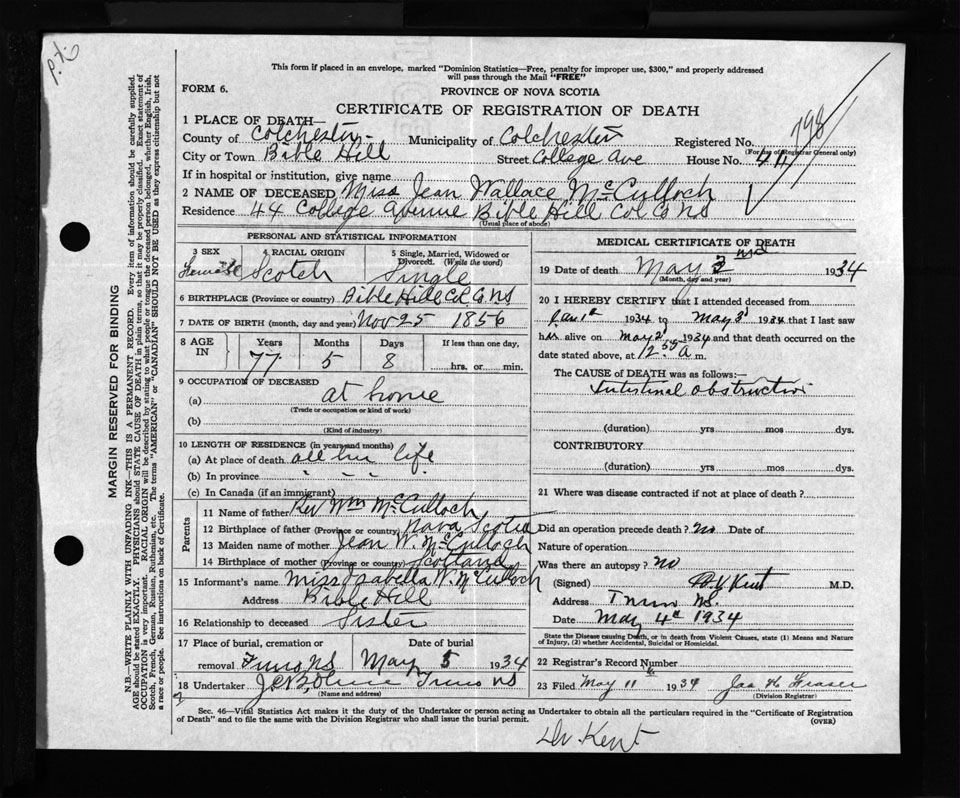 p.t.o
This form if placed in an envelope, marked "Dominion Statistics—Free, penalty for improper use, $300," and properly addressed
will pass through the Mail "FREE"
FORM 6.
PROVINCE OF NOVA SCOTIA
CERTIFICATE OF REGISTRATION OF DEATH
798
1 PLACE OF DEATH—
County of Colchester Municipality of Colchester Registered No.
(For use of Registrar General only)
City or Town Bible Hill Street College Ave House No. 44
If in hospital or institution, give name
2 NAME OF DECEASED Miss Jean Wallace McCulloch
Residence 44 College Avenue Bible Hill Col Co NS
(Usual place of abode)
PERSONAL AND STATISTICAL INFORMATION
3 SEX Female
4 RACIAL ORIGIN Scotch
5 Single, Married, Widowed or Divorced. (Write the word) Single
6 BIRTHPLACE (Province or country) Bible Hill Col. Co. NS
7 DATE OF BIRTH (month, day and year) Nov 25 1856
8 AGE IN Years Months Days If less than one day,
77 5 8 hrs. or min.
9 OCCUPATION OF DECEASED
(a) at home
(Trade or occupation or kind of work)
(b)
(Kind of industry)
10 LENGTH OF RESIDENCE (in years and months)
(a) At place of death all her life
(b) In province " " "
(c) In Canada (if an immigrant)
Parents
11 Name of father Rev Wm McCulloch
12 Birthplace of father (Province or country) Nova Scotia
13 Maiden name of mother Jean W. McCulloch
14 Birthplace of mother (Province or country) Scotland
15 Informant's name Miss Isabella W. McCulloch
Address Bible Hill
16 Relationship to deceased Sister
17 Place of burial, cremation or Date of burial
removal Truro NS May 5 1934
18 Undertaker Truro NS
(Name and address)
MEDICAL CERTIFICATE OF DEATH
19 Date of death May 1934
(Month, day and year)
20 I HEREBY CERTIFY that I attended deceased from
Jan 1st 1934 to May 3d 1934 that I last saw
h alive on May 2d 1934 and that death occurred on the
date stated above, at 12.50 A m.
The CAUSE of DEATH was as follows:—
Intestinal obstruction
(duration) yrs mos dys.
CONTRIBUTORY
(duration) yrs. mos. dys.
21 Where was disease contracted if not at place of death?
Did an operation precede death? no Date of
Nature of operation
Was there an autopsy? no
(Signed) Kent M.D.
Address Truro NS.
Date May 4th 1934
State the Disease causing Death, or in death from Violent Causes, state (1) Means and Nature
of Injury, (2) whether Accidental, Suicidal or Homicidal.
22 Registrar's Record Number
23 Filed May 11th 1934 Jas H Fraser
(Division Registrar)
Sec. 46—Vital Statistics Act makes it the duty of the Undertaker or person acting as Undertaker to obtain all the particulars required in the "Certificate of Registration
of Death" and to file the same with the Division Registrar who shall issue the burial permit.
(OVER)
Dr. Kent
MARGIN RESERVED FOR BINDING
N.B.—WRITE PLAINLY WITH UNFADING INK—THIS IS A PERMANENT RECORD. Every item of information should be carefully supplied.
AGE should be stated EXACTLY. PHYSICIANS should STATE CAUSE OF DEATH in plain terms, so that it may be properly classified. Exact statement of
OCCUPATION is very important. RACIAL ORIGIN will be described by stating to what people or tongue the deceased person belonged, whether English, Irish,
Scotch, French, German, Russian, Ruthenian, etc. The terms "AMERICAN" or "CANADIAN" SHOULD NOT BE USED as they express citizenship but not
a race or people. See instructions on back of Certificate.